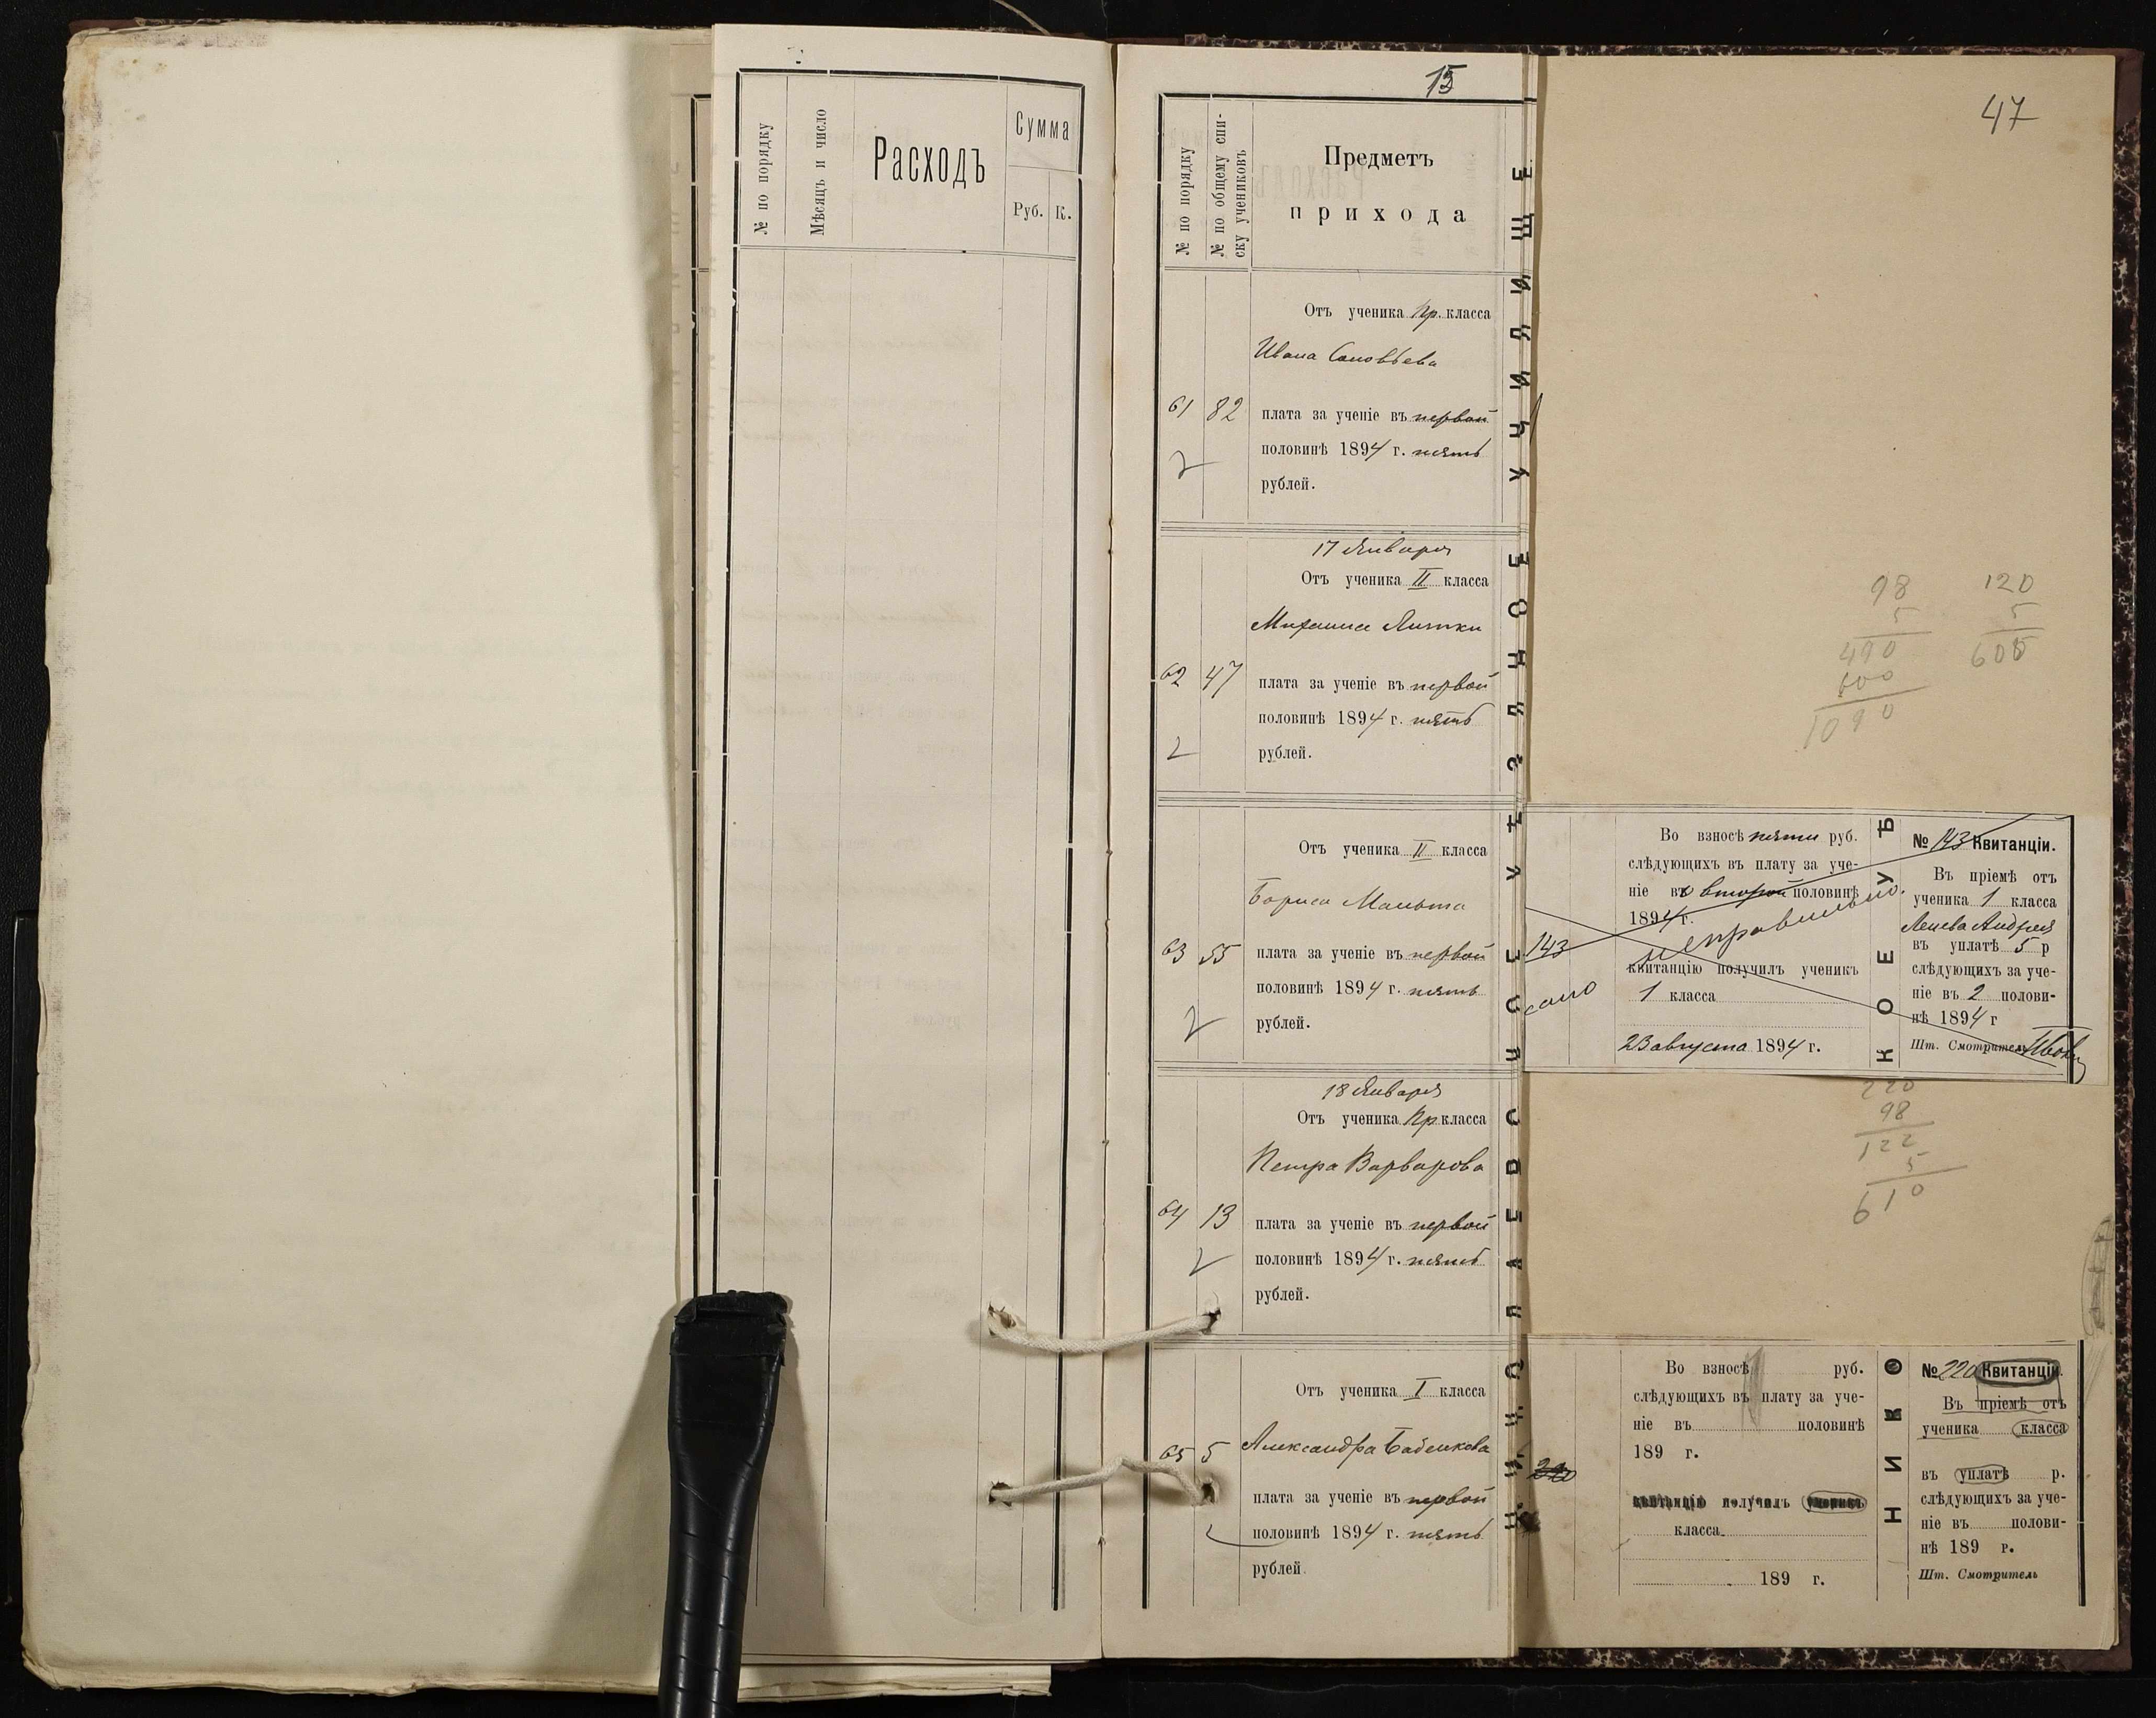 № по порядку
Мѣсяцъ и число
Расходъ
Сумма
Руб. К.
15
№ по порядку
№ по общему спи-
ску учениковъ
Предметъ
прихода
Отъ ученика Пр. класса
Ивана Соловьева
61 82 плата за ученіе въ первой
половинѣ 1894 г. пять
рублей.
17 Января
Отъ ученика II класса
Михаила
62 47 плата за ученіе въ первой
половинѣ 1894 г. пять
рублей.
Отъ ученика II класса
Бориса
63 55 плата за ученіе въ первой
половинѣ 1894 г. пять
рублей.
18 Января
Отъ ученика Пр класса
Петра Варварова
64 13 плата за ученіе въ первой
половинѣ 1894 г. пять
рублей.
Отъ ученика I класса
Александра Бабенкова
65 5 плата за ученіе въ первой
половинѣ 1894 г. пять
рублей.
УЧИЛИЩЕ
47
98
5
490
600
1090
120
5
600
143
Во взносѣ пяти руб.
слѣдующихъ въ плату за уче-
ніе въ второй половинѣ
1894 г.
неправильно.
квитанцію получилъ ученикъ
1 класса
23 августа 1894 г.
КОЕ УѢ
№ 143 Квитанціи.
Въ пріемѣ отъ
ученика 1 класса
Андрея
въ уплатѣ 5 р
слѣдующихъ за уче-
ніе въ 2 полови-
нѣ 1894 г
Шт. Смотритель
220
98
122
5
610
220
Во взносѣ руб.
слѣдующихъ въ плату за уче-
ніе въ половинѣ
189 г.
квитанцію получилъ ученикъ
класса
189 г.
НИКО
№ 220 Квитанціи.
Въ пріемѣ отъ
ученика класса
въ уплатѣ р.
слѣдующихъ за уче-
ніе въ полови-
нѣ 189 г.
Шт. Смотритель